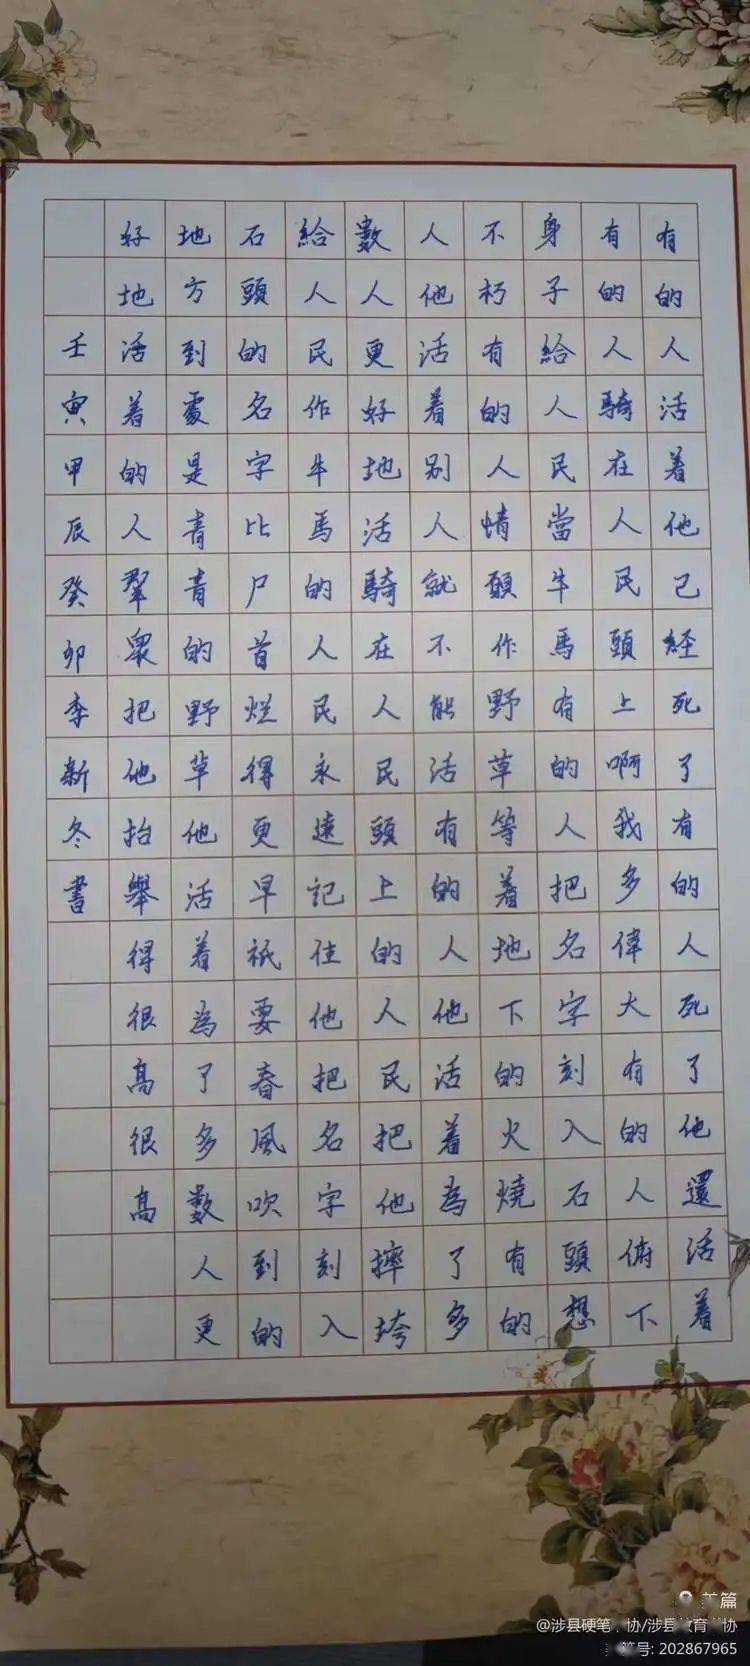 有的人活着他己經死了有的人死了他還活着
有的人騎在人民頭上啊我多偉大有的人俯下
身子給人民當牛馬有的人把名字刻入石頭想
不朽有的人情願作野草等着地下的火燒有的
人他活着別人就不能活有的人他活着為了多
數人更好地活騎在人民頭上的人民把他摔垮
給人民作牛馬的人民永遠記住他把名字刻入
石頭的名字比尸首烂得更早祇要春風吹到的
地方到處是青青的野草他活着為了多數人更
好地活着的人羣衆把他抬舉得很高很高
壬寅甲辰癸卯李新冬書
美篇
@涉县硬笔 协/涉县 育 协
号: 202867965